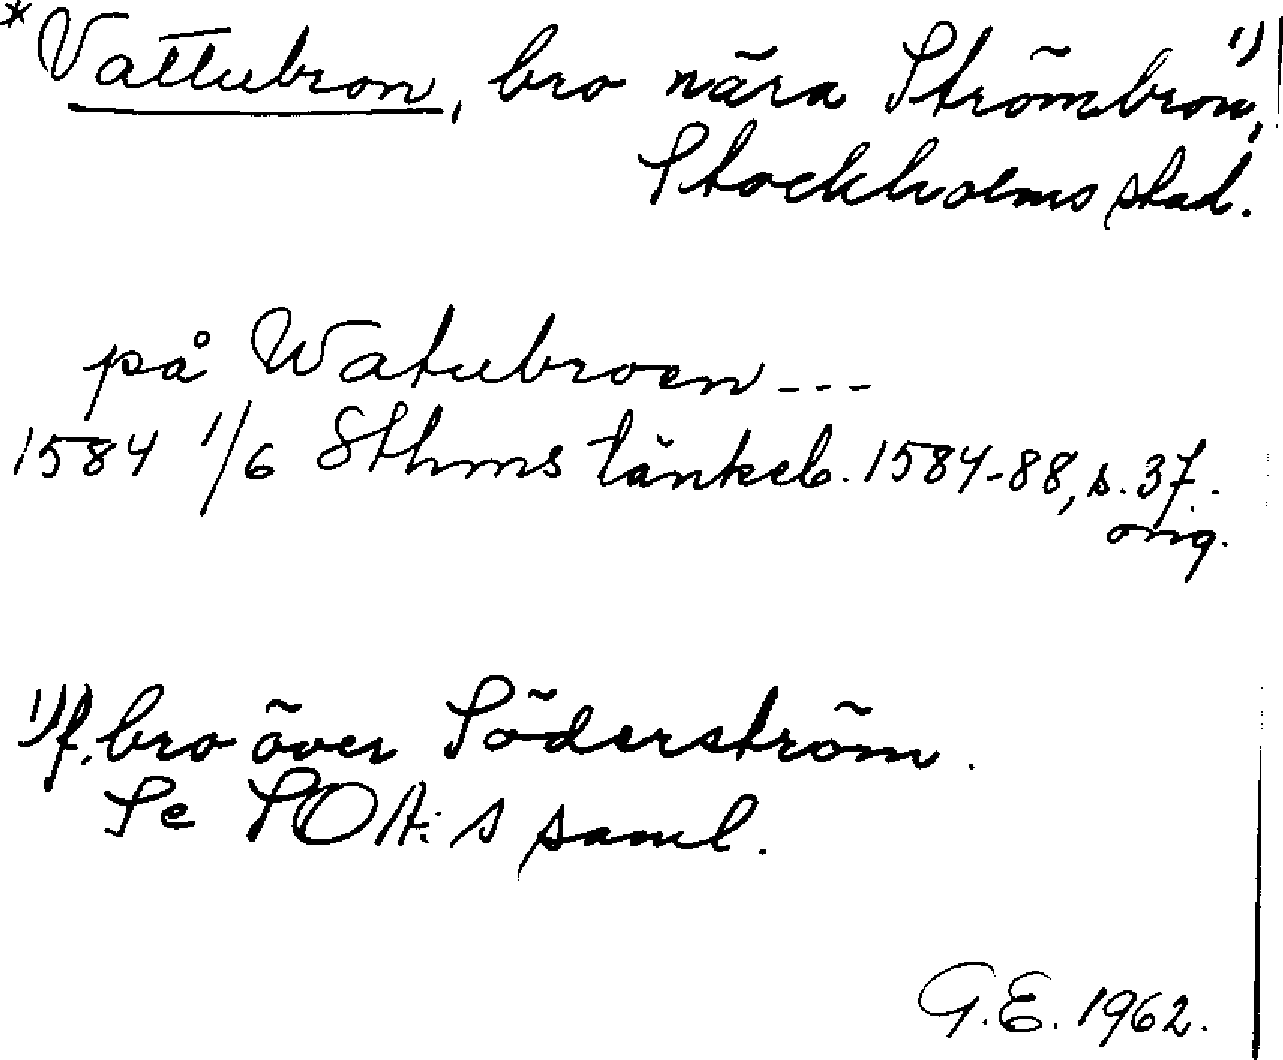 *Vattubron, bro nära Strömbron,¹⁾
Stockholms stad.
på Watubroen ---
1584 1/6 Sthms tänkeb. 1584-88, s. 37.
orig.
¹⁾ f. bro över Söderström.
Se SOA:s saml.
G.E. 1962.